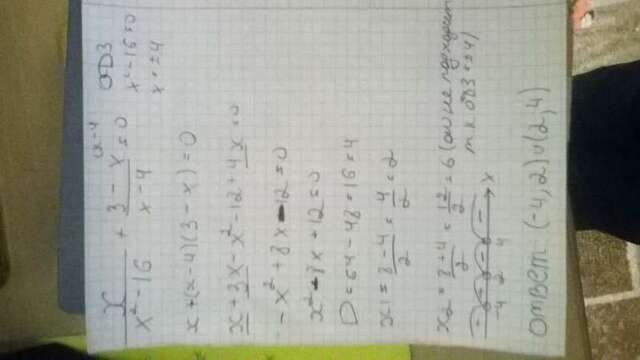 x/(x²-16) + (3-x)/(x-4) ≤ 0 (x-4
ОДЗ
x²-16=0
x=±4
x+(x-4)(3-x)=0
x+3x-x²-12+4x=0
-x²+8x-12=0
x²-8x+12=0
D=64-48=16=4
x1=(8-4)/2=4/2=2
x2=(8+4)/2=12/2=6 (он не подходит
т к ОДЗ=±4)
- - - - x
-4 2 4
Ответ (-4,2)∪(2,4)